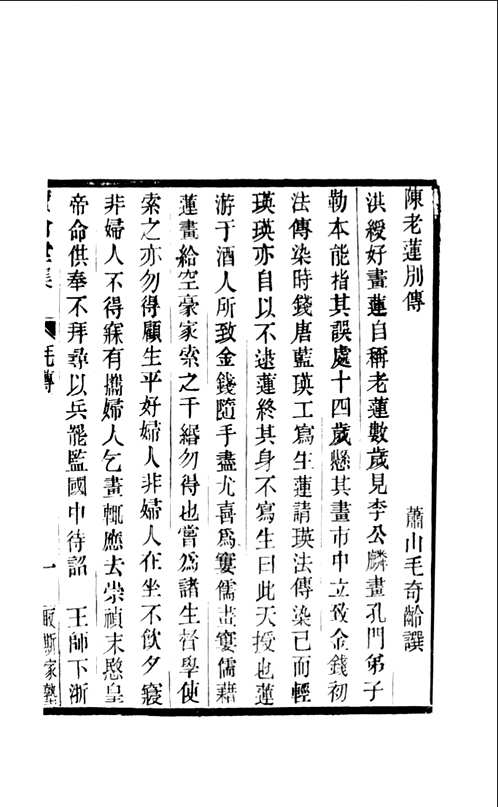 陳老蓮別傳
蕭山毛奇齡譔
洪綬好畫蓮自稱老蓮數歲見李公麟畫孔門弟子
勒本能指其誤處十四歲懸其畫市中立致金錢初
法傳染時錢唐藍瑛工寫生蓮請瑛法傳染已而輕
瑛瑛亦自以不逮蓮終其身不寫生曰此天授也蓮
游于酒人所致金錢隨手盡尤喜爲窶儒畫窶儒藉
蓮畫給空豪家索之千緡勿得也嘗爲諸生督學使
索之亦勿得顧生平好婦人非婦人在坐不飲夕寢
非婦人不得寐有攜婦人乞畫輒應去崇禎末愍皇
帝命供奉不拜尋以兵罷監國中待詔 王師下浙
堂集
毛傳
一
家塾